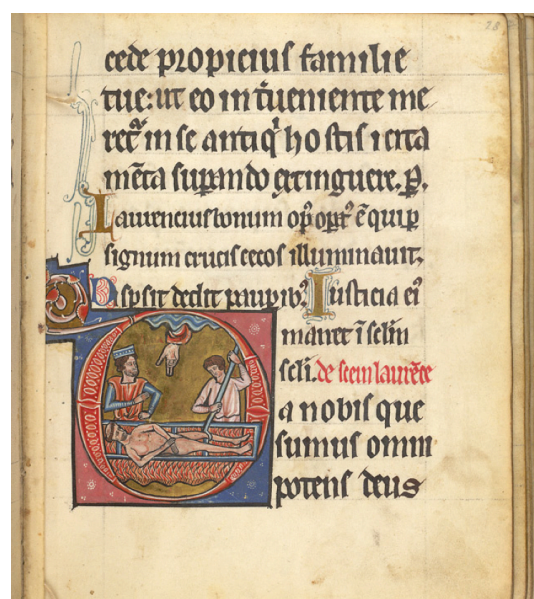 28
cede propicius familie
tue: ut eo int̄ueniente me
ret᷑ in se antiq̇ hostis icita
mēta suꝑando extinguere. ꝑ.
Laurencius bonum opꝰ opat᷑ ē qui ꝑ
signum crucis cecos illuminauit.
Dispsit dedit pauꝑibꝫ. Iusticia eiꝰ
manet ī sclm̄
scli. de scōm laurēce
a nobis que
sumus omni
potens deus